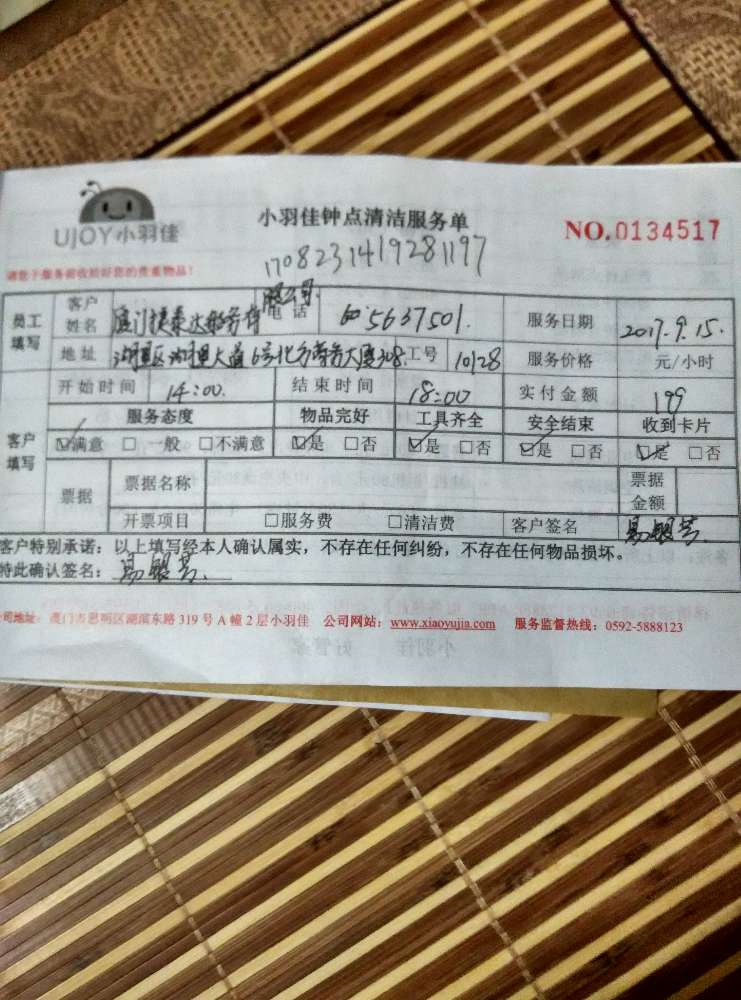 UJOY小羽佳
小羽佳钟点清洁服务单
NO.0134517
1708231419281197
请您于服务前收拾好您的贵重物品!
员工填写 客户姓名 厦门捷泰达船务有限公司 电话 5637501. 服务日期 2017.9.15.
地址 湖里区湖里大道6号北方商务大厦308. 工号 10128 服务价格 元/小时
开始时间 14:00. 结束时间 18:00 实付金额 199
客户填写 服务态度 物品完好 工具齐全 安全结束 收到卡片
☑满意 □一般 □不满意 ☑是 □否 ☑是 □否 ☑是 □否 ☑是 □否
票据 票据名称 票据金额
开票项目 □服务费 □清洁费 客户签名 易银芳
客户特别承诺:以上填写经本人确认属实,不存在任何纠纷,不存在任何物品损坏。
特此确认签名:易银芳.
公司地址:厦门市思明区湖滨东路319号A幢2层小羽佳 公司网站:www.xiaoyujia.com 服务监督热线:0592-5888123